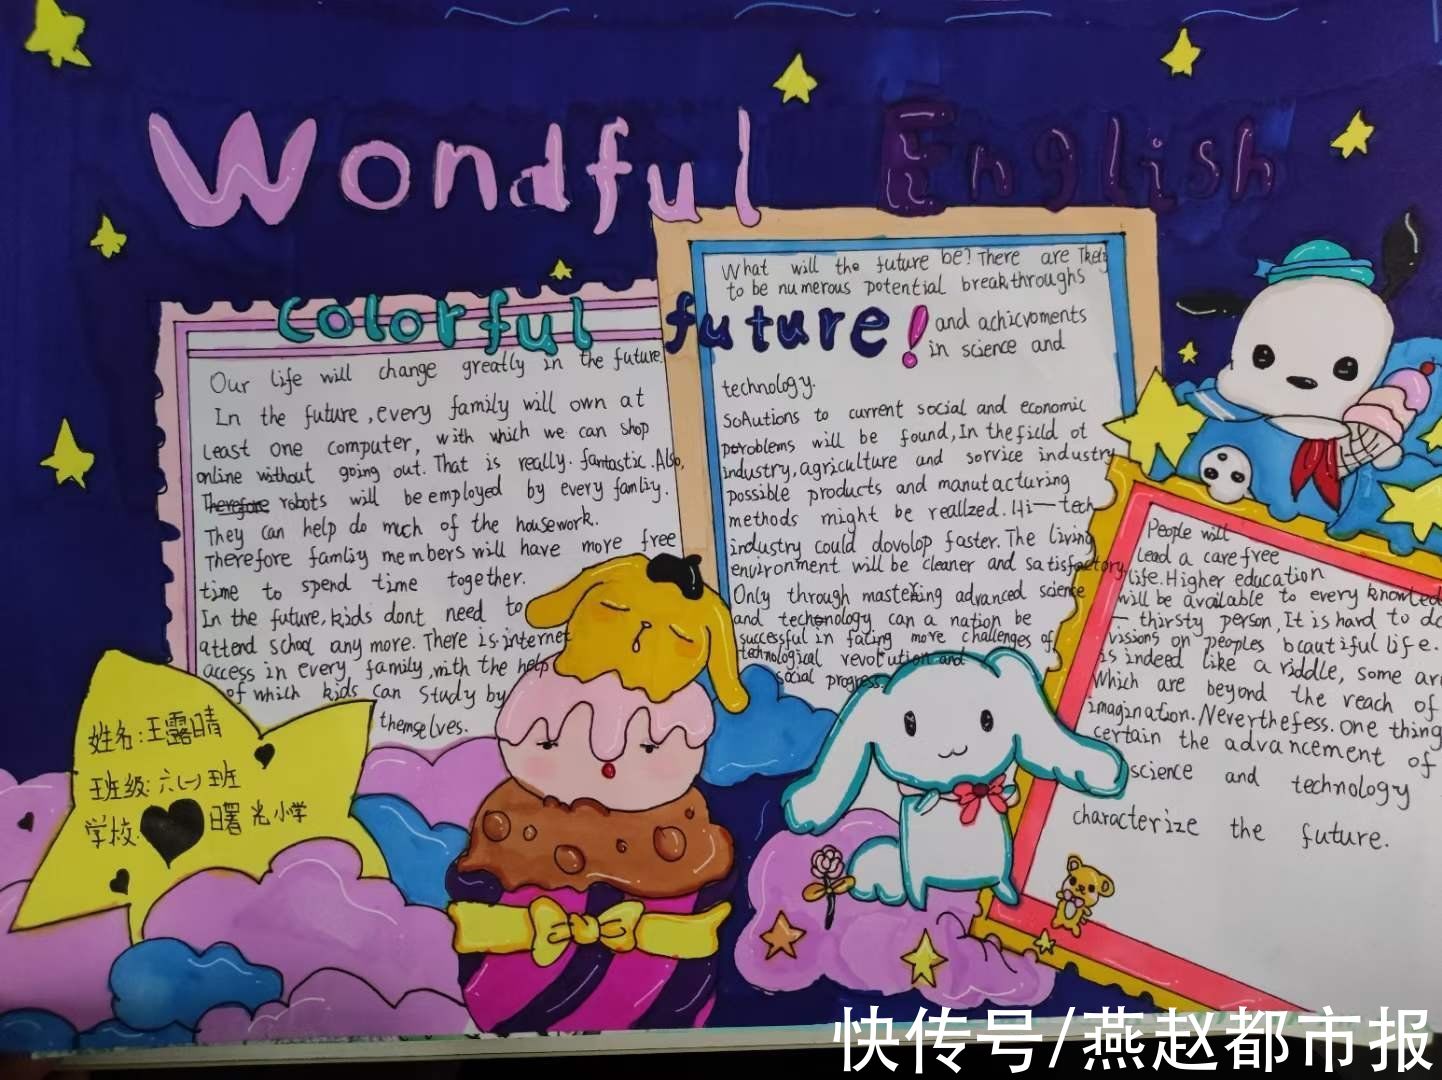 Wondful English
Colorful future!
Our life will change greatly in the future.
In the future, every family will own at
Least one computer, with which we can shop
online without going out. That is really. fantastic. Also,
Therefore robots will be employed by every famliy.
They can help do much of the housework.
Therefore famliy members will have more free
time to spend time together.
In the future, kids dont need to
attend school any more. There is internet
access in every family, with the help
of which kids can study by
themselves.
What will the future be? There are
to be numerous potential breakthroughs
and achicvoments
in science and
technology.
to current social and economic
will be found, In the filld ot
industry, agriculture and sorvice industry
possible products and manutacturing
methods might be reallzed. Hi-tech
industry could dovolop faster. The living
environment will be cleaner and satisfactory.
Only through advanced science
and technology can a nation be
successful in facing more challenges of
technological revolution and
social progress.
People will
Lead a care free
life. Higher education
will be available to every
— thirsty person, It is hard to
visions on peoples bcautiful life.
is indeed like a riddle, some
Which are beyond the reach of
imagination. Neverthefess. One thing
certain the advancement of
science and technology
characterize the future.
姓名:王露晴
班级:六(一)班
学校:曙光小学
快传号/燕赵都市报